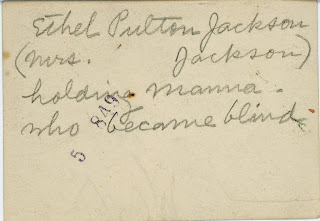 Ethel Pulton Jackson
(Mrs. Jackson)
holding manna.
who became blind.
5 849